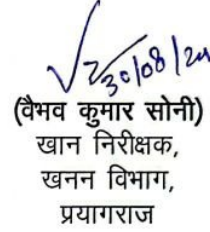 30/08/24
(वैभव कुमार सोनी)
खान निरीक्षक,
खनन विभाग,
प्रयागराज